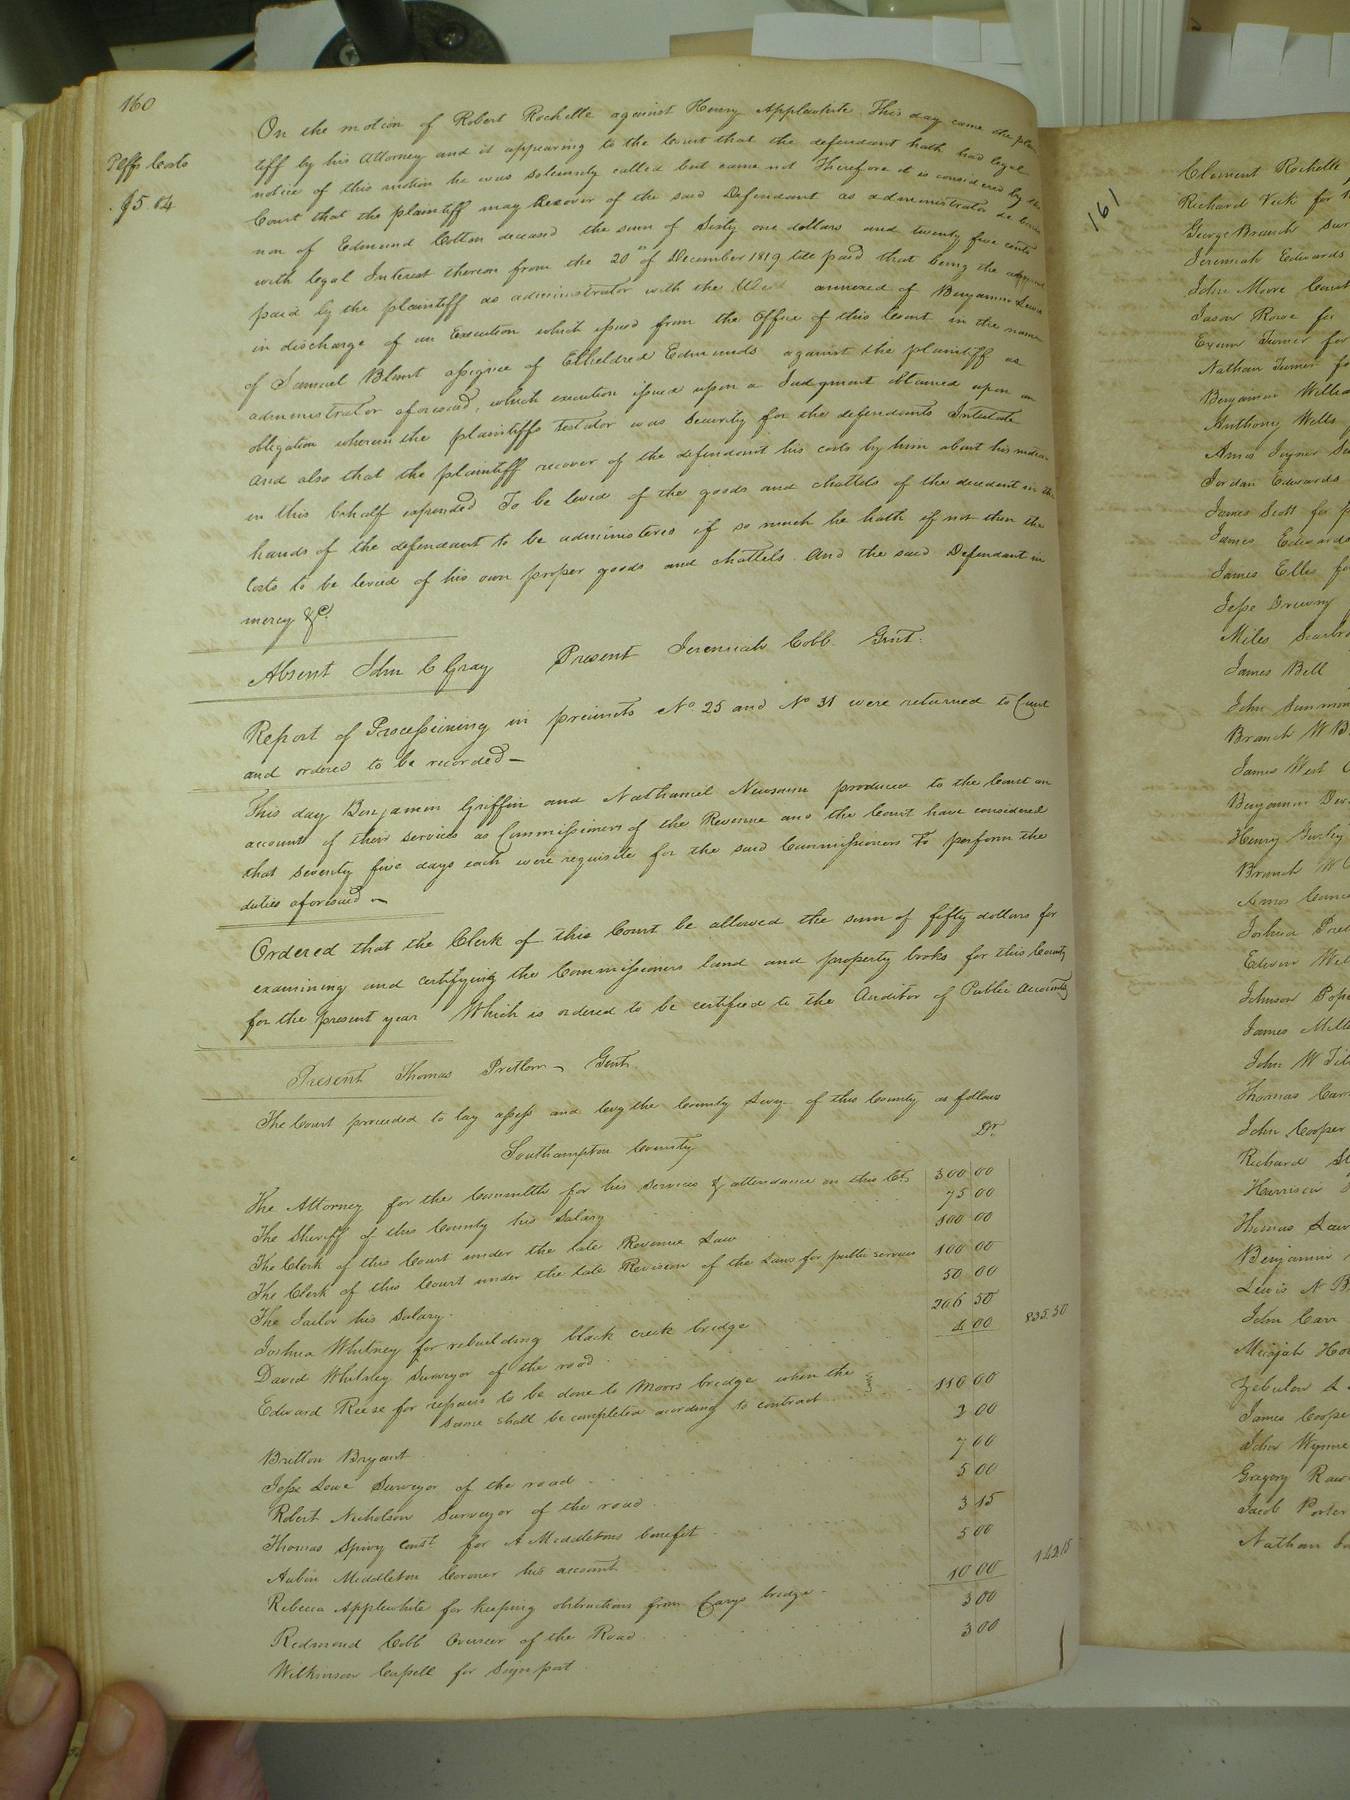 160
Plffs Costs
$5 04
On the motion of Robert Rochelle against Henry Applewhite This day came the plain
tiff by his Attorney and it appearing to the Court that the defendant hath had legal
notice of this motion he was solemnly called but came not Therefore it is considered by the
Court that the plaintiff may Recover of the said Defendant as administrator de bonis
non of Edmund Cotton deceased the sum of Sixty one dollars and twenty five cents
with legal Interest thereon from the 20th of December 1819 till paid that being the
paid by the plaintiff as administrator with the Will annexed of Benjamin Lewis
in discharge of an Execution which issued from the Office of this Court in the name
of Samuel Blunt assignee of Etheldred Edmunds against the plaintiff as
administrator aforesaid, which execution issued upon a Judgment obtained upon an
obligation wherein the plaintiffs testator was Security for the defendants Intestate
and also that the plaintiff recover of the defendant his costs by him about his motion
in this behalf expended To be levied of the goods and chattels of the decedent in the
hands of the defendant to be administered if so much he hath if not then the
Costs to be levied of his own proper goods and chattels. And the said Defendant in
mercy &c.
Absent John C Gray Present Jeremiah Cobb Gent.
Report of Processioning in precincts No. 25 and No 31 were returned to Court
and ordered to be recorded
This day Benjamin Griffin and Nathaniel Newsum produced to the Court an
account of their services as Commissioners of the Revenue and the Court have considered
that seventy five days each were requisite for the said Commissioners to perform the
duties aforesaid
Ordered that the Clerk of this Court be allowed the sum of fifty dollars for
examining and certifying the Commissioners land and property books for this County
for the present year Which is ordered to be certified to the Auditor of Public Accounts
Present Thomas Pretlow Gent
The Court proceeded to lay assess and levy the County Levy of this County as follows
Southampton County Dr.
The Attorney for the Commlth for his Services & attendance on this Ct. 300 00
The Sheriff of this County his Salary 75 00
The Clerk of this Court under the late Revenue Law 100 00
The Clerk of this Court under the late Revision of the Laws for public services 100 00
The Jailor his Salary 50 00
Joshua Whitney for rebuilding black creek bridge 206 50
David Whitney Surveyor of the road 4 00 835.50
Edward Reese for repairs to be done to Morris bridge when the
same shall be completed according to contract 110 00
Britton Bryant 2 00
Jesse Lowe Surveyor of the road 7 00
Robert Nicholson Surveyor of the road 5 00
Thomas Spivy Const. for A Middletons benefit 3 15
Aubin Middleton Coroner his account 5 00
Rebecca Applewhite for keeping obstructions from Carys bridge 10 00 142.15
Redmond Cobb Overseer of the Road 3 00
Wilkinson Capell for Sign post 3 00
161
Clement Rochelle
Richard Vick for
George Branch Sur
Jeremiah Edwards
John Moore Const
Jason Rowe for
Exum Turner for
Nathan Turner fo
Benjamin Willia
Anthony Wells
Amos Joyner Su
Jordan Edwards
James Scott for p
James Edwards
James Ellis fo
Jesse Drewry
Miles Scarbro
James Bell
John Summ
Branch W B
James West C
Benjamin Dev
Henry Gurley
Branch W
Amos
Joshua Pret
Edwin Wel
Johnson Pope
James Mill
John W
Thomas Carr
John Cooper
Richard
Harrison
Thomas Law
Benjamin
Lewis N B
John Carr
Micajah Ho
Zebulon
James Coope
John Wynne
Gregory Raw
Jacob Porter
Nathan